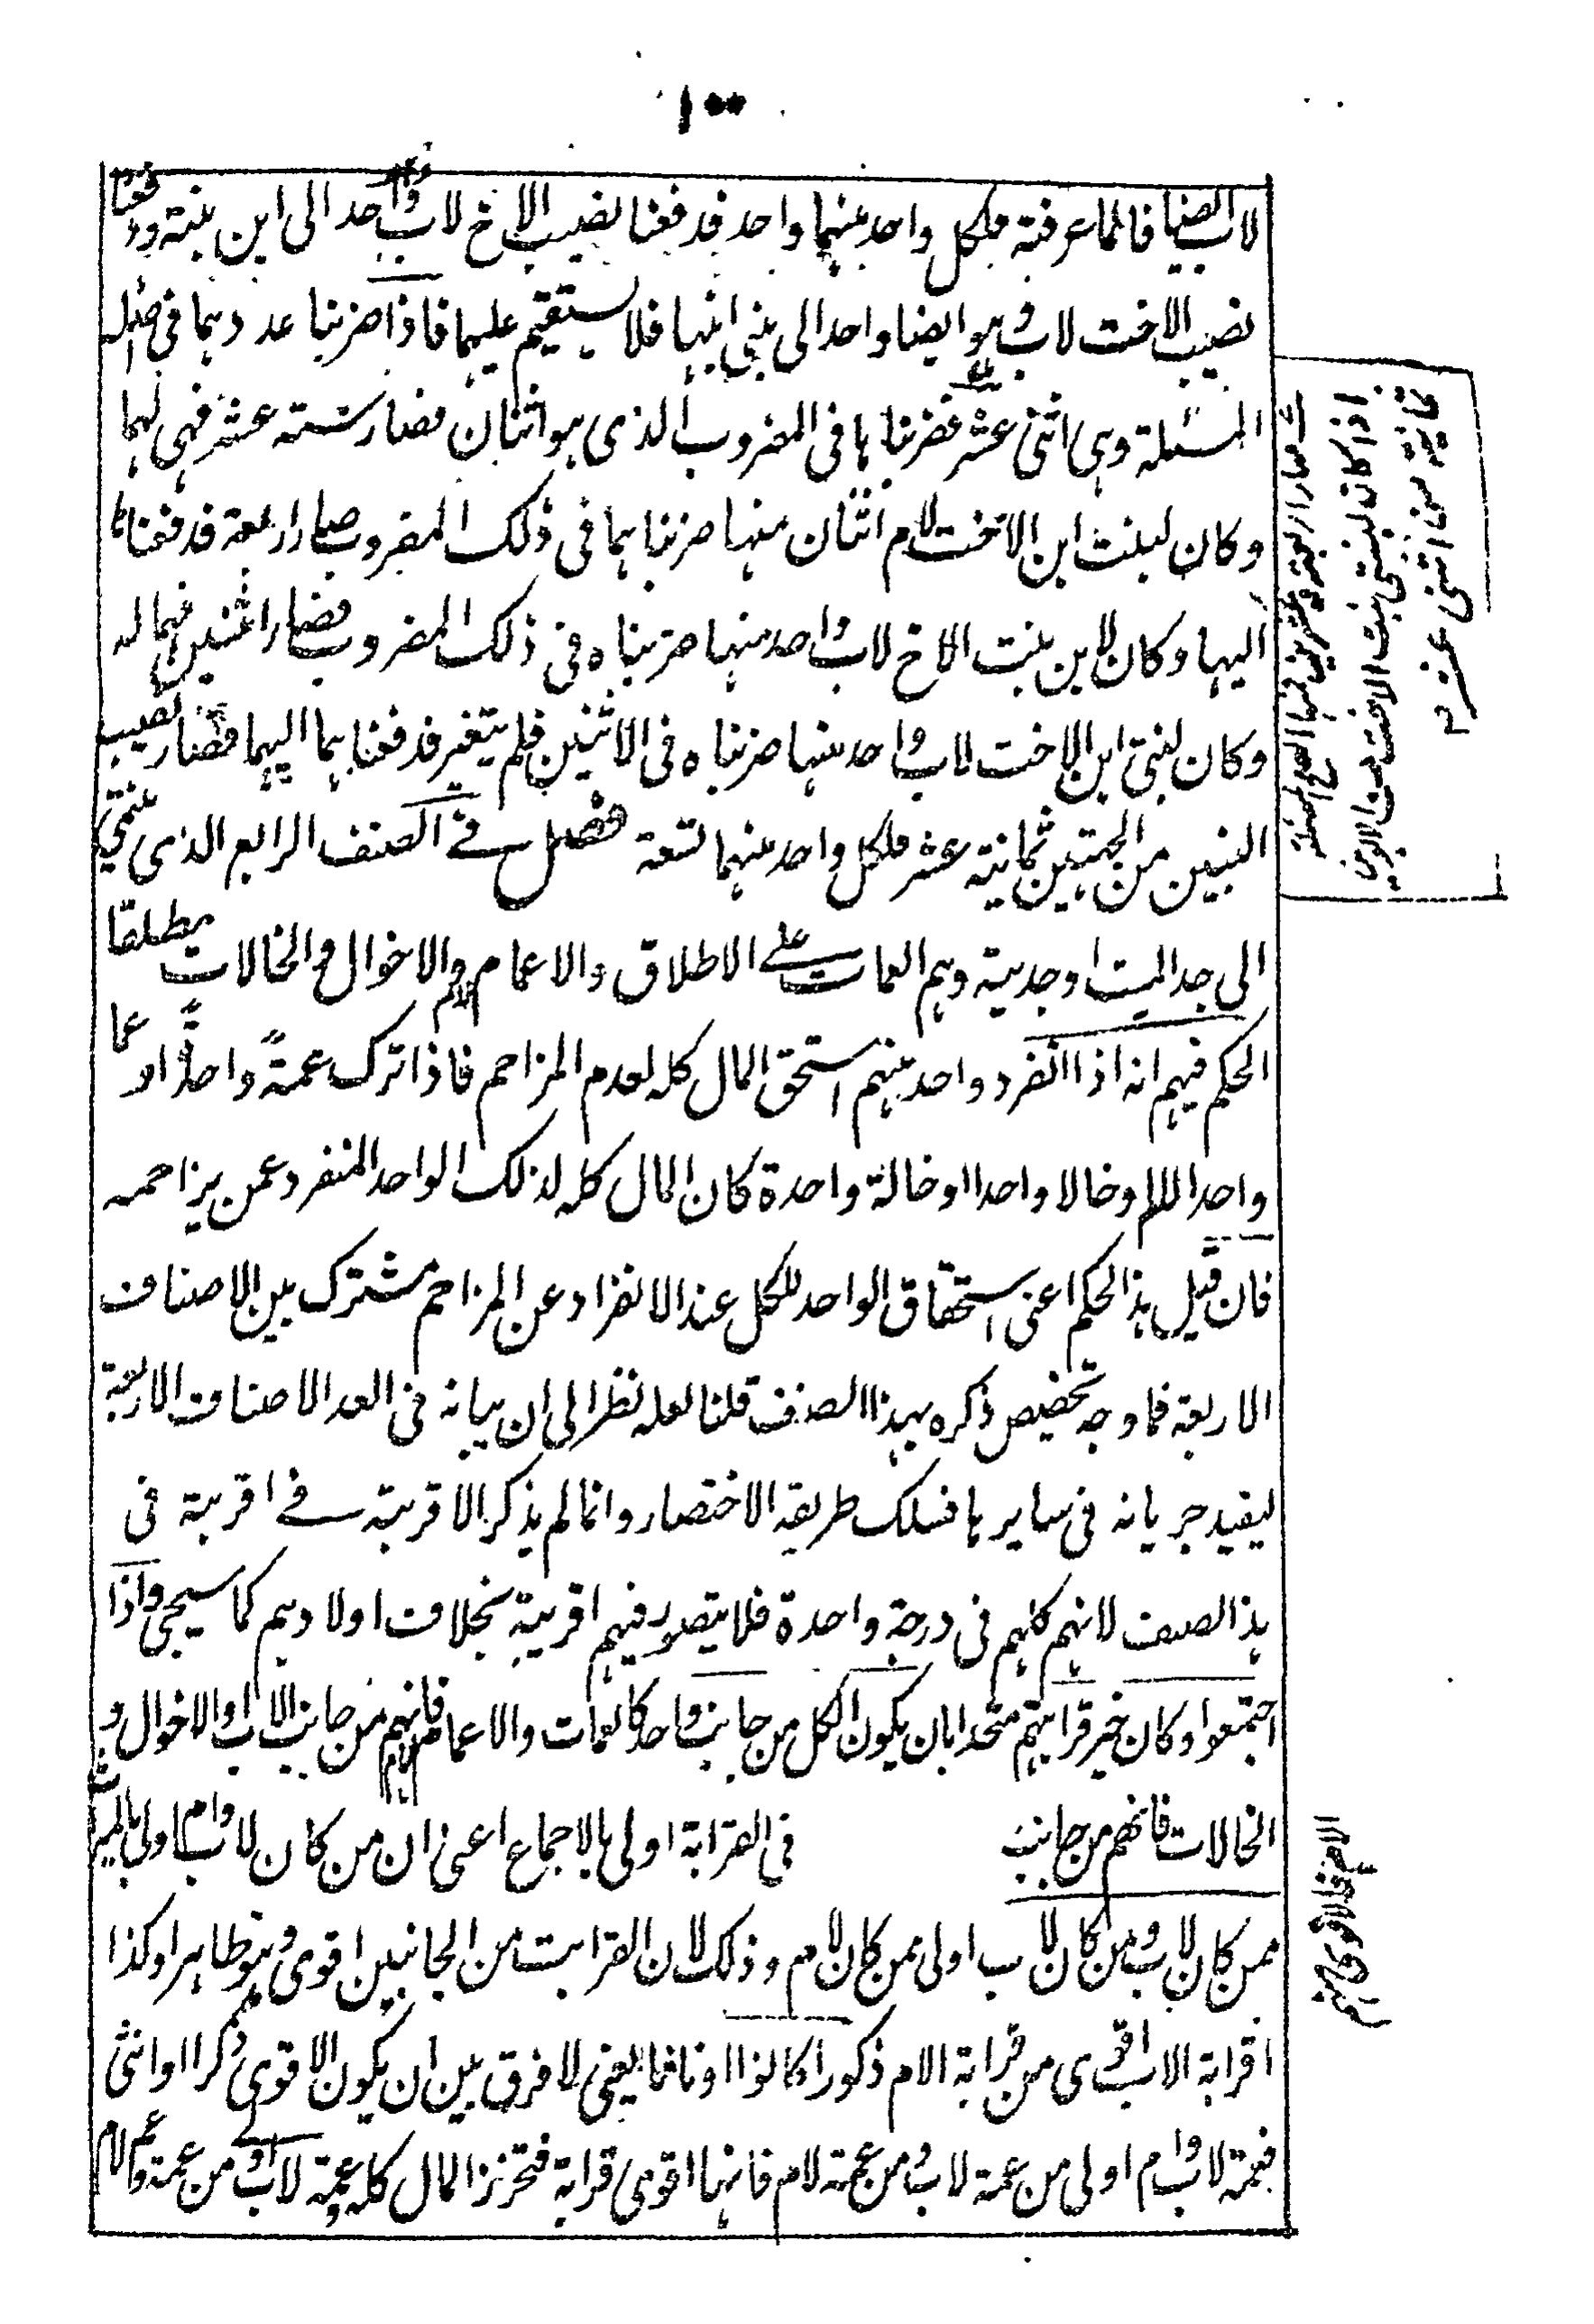 ١٠٠
لاب ايضا فالما عرفته فلكل واحد منهما واحد فدفعنا نصيب الاخ لاب وهو واحد الى ابن بنته ودفعنا
نصيب الاخت لاب وهو ايضا واحد الى بنتى ابنها فلا يستقيم عليهما فاذا ضربنا عددهما فى اصل
المسئلة وهى اثنى عشر فضربناها فى المضروب الذى هو اثنان فصار ستة عشر فهى لهما
وكان لبنت ابن الاخت لام اثنان منها ضربناهما فى ذلك المضروب صار اربعة فدفعناها
اليها وكان لابن بنت الاخ لاب واحد منها ضربناه فى ذلك المضروب فصار اثنين فهما له
وكان لبنتى ابن الاخت لاب واحد منها ضربناه فى الاثنين فلم يتغير فدفعنا بهما اليهما فصار نصيب
البنتين من الجهتين ثمانية عشر فلكل واحد منهما تسعة فصل فى الصنف الرابع الذى ينتمى
الى جد الميت او جدتيه وهم العمات على الاطلاق والاعمام لام والاخوال والخالات مطلقا
الحكم فيهم انه اذا انفرد واحد منهم استحق المال كله لعدم المزاحم فاذا ترك عمةً واحدةً او عما
واحدا لام او خالا واحدا او خالة واحدة كان المال كله لذلك الواحد المنفرد عمن يزاحمه
فان قيل هذا الحكم اعنى استحقاق الواحد للكل عند الانفراد عن المزاحم مشترك بين الاصناف
الاربعة فما وجه تخصيص ذكره بهذا الصنف قلنا لعله نظر الى ان بيانه فى ابعد الاصناف الاربعة
ليفيد جريانه فى سايرها فسلك طريقة الاختصار وانما لم يذكر الاقربية فى اقربية فى
هذا الصنف لانهم كلهم فى درجة واحدة فلا يتصور فيهم اقربية بخلاف اولادهم كما سيجى واذا
اجتمعوا وكان حيز قرابتهم متحدا بان يكون الكل من جانب واحد كالعمات والاعمام لام فانهم من جانب الاب او الاخوال و
الخالات فانهم من جانب فى القرابة اولى بالاجماع اعنى ان من كان لاب وام اولى بالميراث
ممن كان لاب ومن كان لاب اولى ممن كان لام وذلك لان القرابت من الجانبين اقوى وهو ظاهر او كذا
قرابة الاب اقوى من قرابة الام ذكورا كانوا او اناثا يعنى لا فرق بين ان يكون الاقوى ذكرا او انثى
فعمة لاب وام اولى من عمة لاب ومن عمة لام فانها اقوى قرابة فتحرز المال كله وعمة لاب اولى من عمة وعم لام
اذا كان لبنتى بنت الاخت من الابوين
ثمانية من اثنى عشر
الام فالاقوى منهم